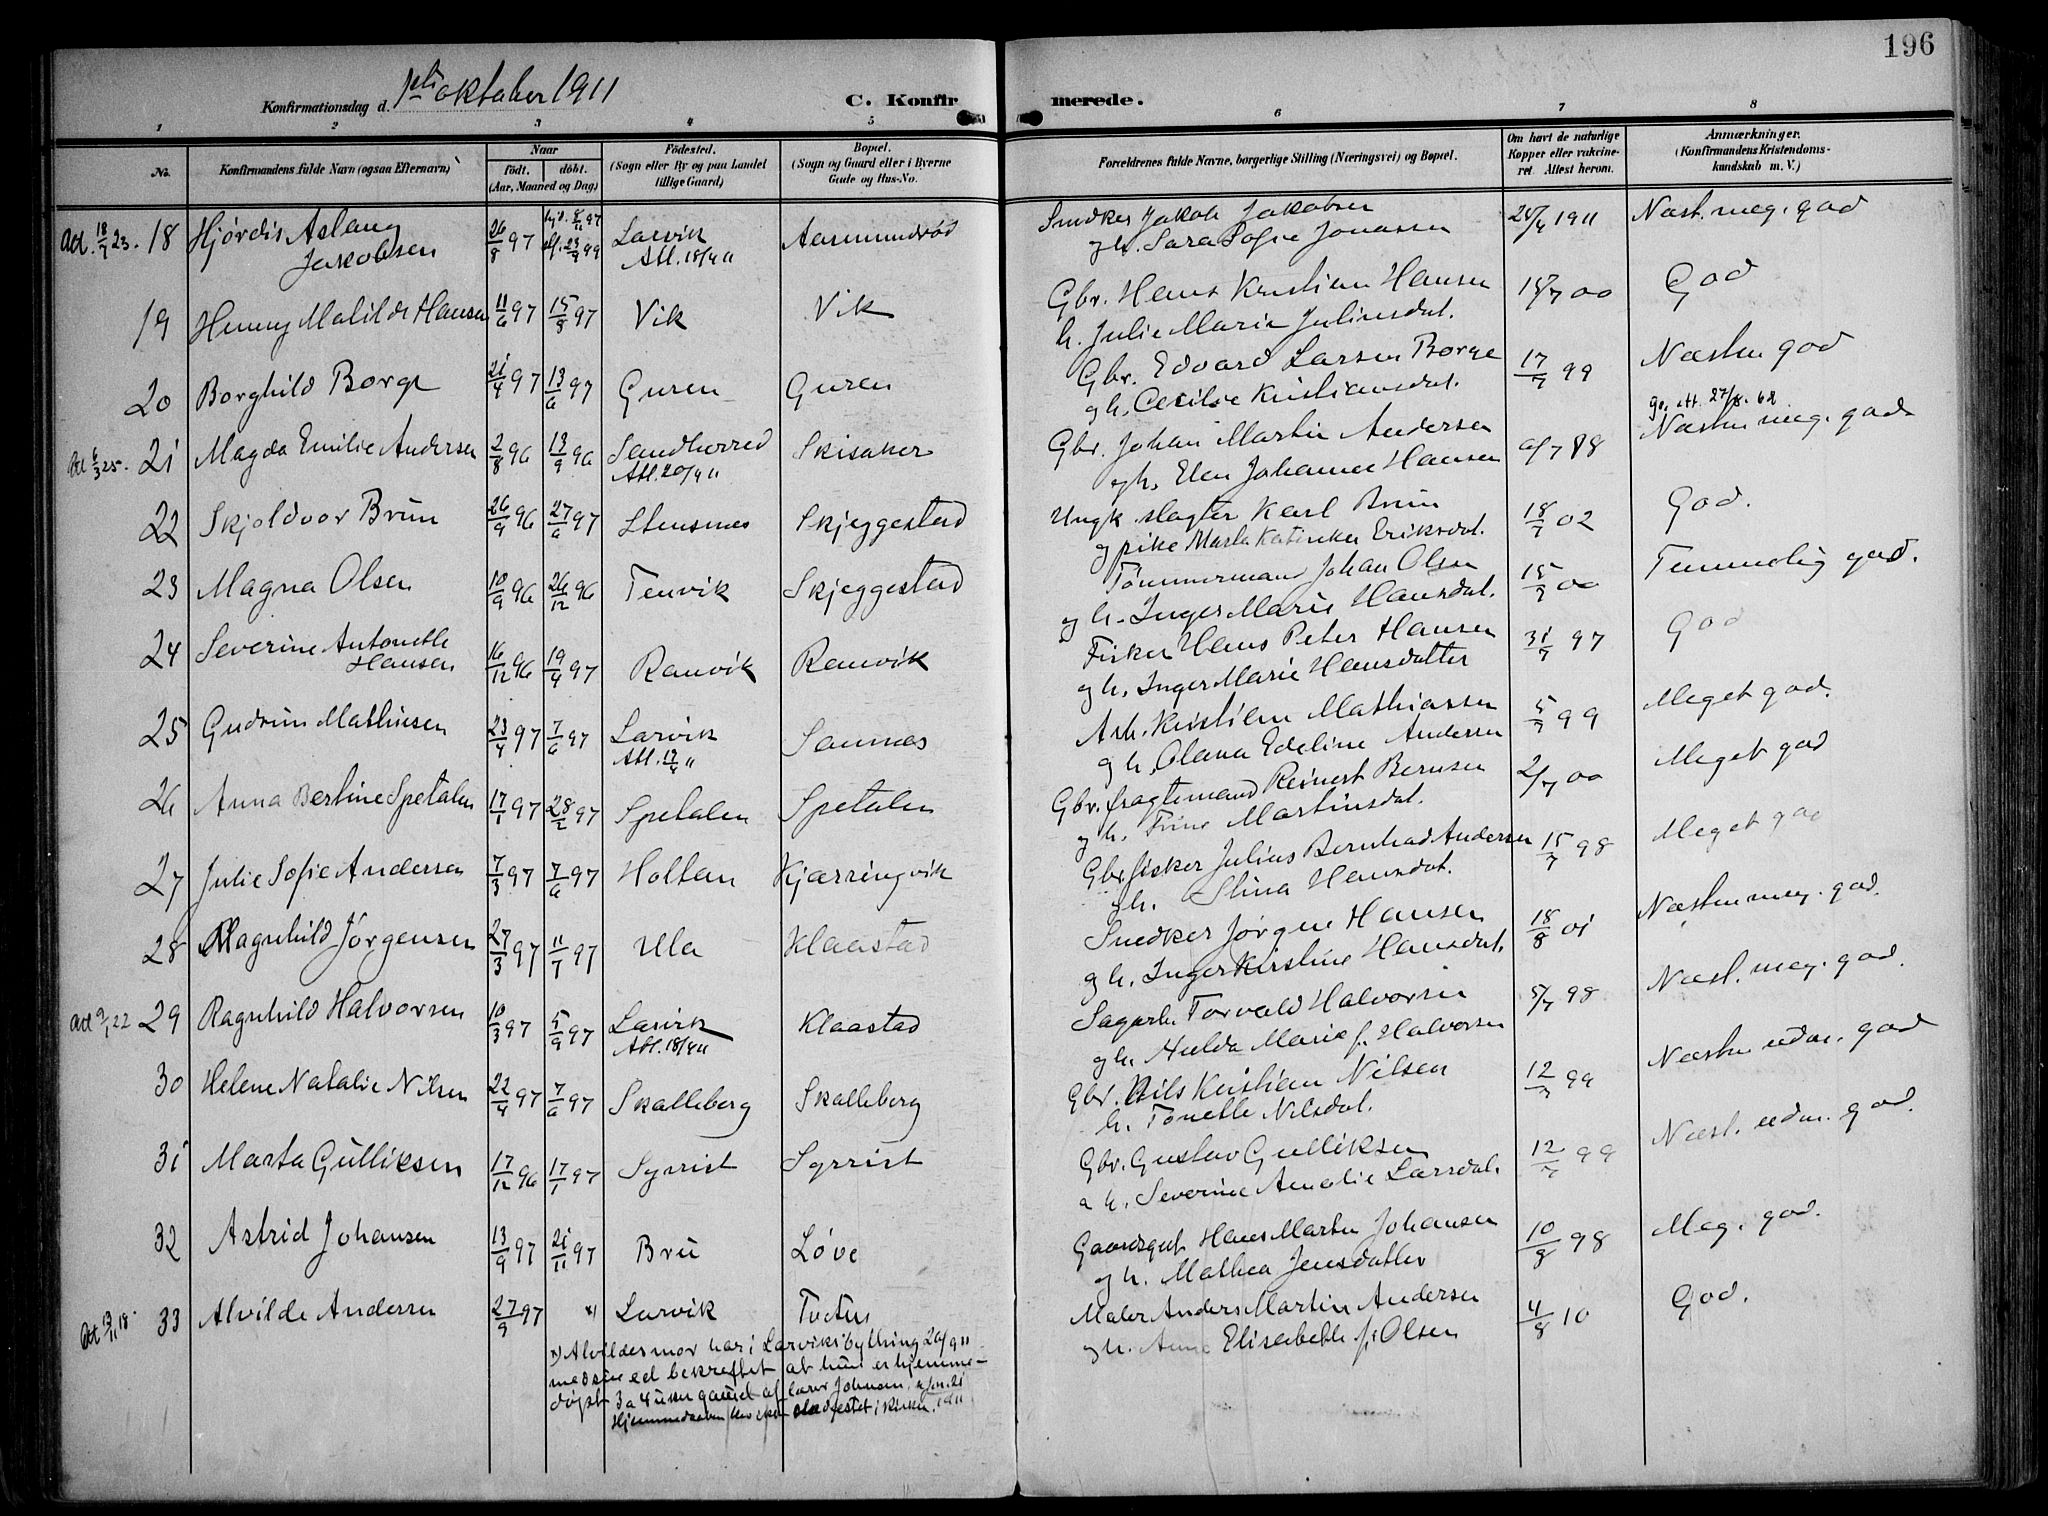 196
Konfirmationsdag d. 1ste oktober 1911
C. Konfirmerede.
1 2 3 4 5 6 7 8
No.
Konfirmandens fulde Navn (ogsaa Efternavn)
Naar
født. døbt.
(Aar, Maaned og Dag)
Fødested.
(Sogn eller By og paa Landet
tillige Gaard)
Bopæl.
(Sogn og Gaard eller i Byerne
Gade og Hus-No.
Forældrenes fulde Navne, borgerlige Stilling (Næringsvei) og Bopæl.
Om havt de naturlige
Kopper eller vakcine-
ret. Attest herom.
Anmærkninger.
(Konfirmandens Kristendoms-
kundskab m. V.)
Att. 18/7 23. 18 Hjørdis Aslaug Jakobsen 26/8 97 Larvik Att. 18/9 11 Aasmundrød
Snedker Jakob Jakobsen
og h. Sara Sofie Jonassen 1911 Næst. meg. god
19 Henny Matilde Hansen 11/6 97 15/8 97 Vik Vik
Gbr. Hans Kristian Hansen
h. Julie Marie Juliusdat. 18/7 00 God
20 Borghild Borge 21/4 97 13/6 97 Guren Guren
Gbr. Edvard Larsen Borge
og h. Cecilie Kristiansdat. 17/7 99 Næsten god
21 Magda Emilie Andersen 2/8 96 13/9 96 Sandherred Att. 20/9 11 Skisaker
Gbr. Johan Martin Andersen
og h. Elen Johanne Hansen Næsten meg. god
22 Skjoldvor Brun 26/9 96 27/6 97 Stensnes Skjeggestad
Ungk. slagter Karl Brun
og pike Marta Katinka Eriksdat. 18/7 02 God.
23 Magna Olsen 10/9 96 26/12 96 Tenvik Skjeggestad
Tømmermand Johan Olsen
og h. Inger Marie Hansdat. 15/7 00 Temmelig god.
24 Severine Antonette Hansen 16/12 96 19/4 97 Ranvik Ranvik
Fisker Hans Peter Hansen
og h. Inger Marie Hansdatter 31/7 97 God
25 Gudrun Mathisen 23/4 97 7/6 97 Larvik Sannes
Arb. Kristian Mathiassen
og h. Olava Edeline Andersen 5/7 99 Meget god.
26 Anna Bertine Spetalen 17/1 97 28/2 97 Spetalen Spetalen
Gbr. fragtemand Reinert Berntsen
og h. Trine Martinsdat. 2/7 00 Meget god
27 Julie Sofie Andersen 7/3 97 7/6 97 Holtan Kjærringvik
Gbr fisker Julius Bernhad Andersen
og h. Stina Hansdat. 15/7 98 Meget god
28 Magnhild Jørgensen 27/3 97 11/7 97 Ula Klaastad
Snedker Jørgen Hansen
og h. Inger Kirstine Hansdat. 18/8 01 Næsten meg. god.
29 Ragnhild Halvorsen 10/3 97 5/9 97 Larvik Att. 18/9 11 Klaastad
Sagarb. Torvald Halvorsen
og h. Hulda Marie f. Halvorsen 5/7 98 Næst. meg. god.
30 Helene Natalie Nilsen 22/4 97 7/6 97 Skalleberg Skalleberg
Gbr. Nils Kristian Nilsen
h. Tonette Nilsdat. 12/7 99 Næsten udm. god
31 Marta Gulliksen 17/12 96 17/1 97 Syrrist Syrrist
Gbr. Gustav Gulliksen
og h. Severine Amalie Larsdat. 12/7 99 Næst. udm. god.
32 Astrid Johansen 13/9 97 21/11 97 Bru Løve
Gaardsgut Hans Martin Johansen
og h. Mathea Jensdatter 10/8 98 Meg. god.
33 Alvilde Andersen 27/9 97 x) Larvik
Maler Anders Martin Andersen
og h. Anne Elisabeth f. Olsen 4/8 10 God.
x) Alvildes mor har i Larviks bything 26/9 11
med sin ed bekreftet at hun er hjemme-
døpt 3 a 4 uker gammel af